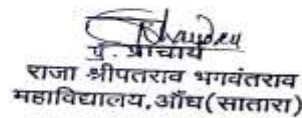 प्र. प्राचार्य
राजा श्रीपतराव भगवंतराव
महाविद्यालय,औंध(सातारा)